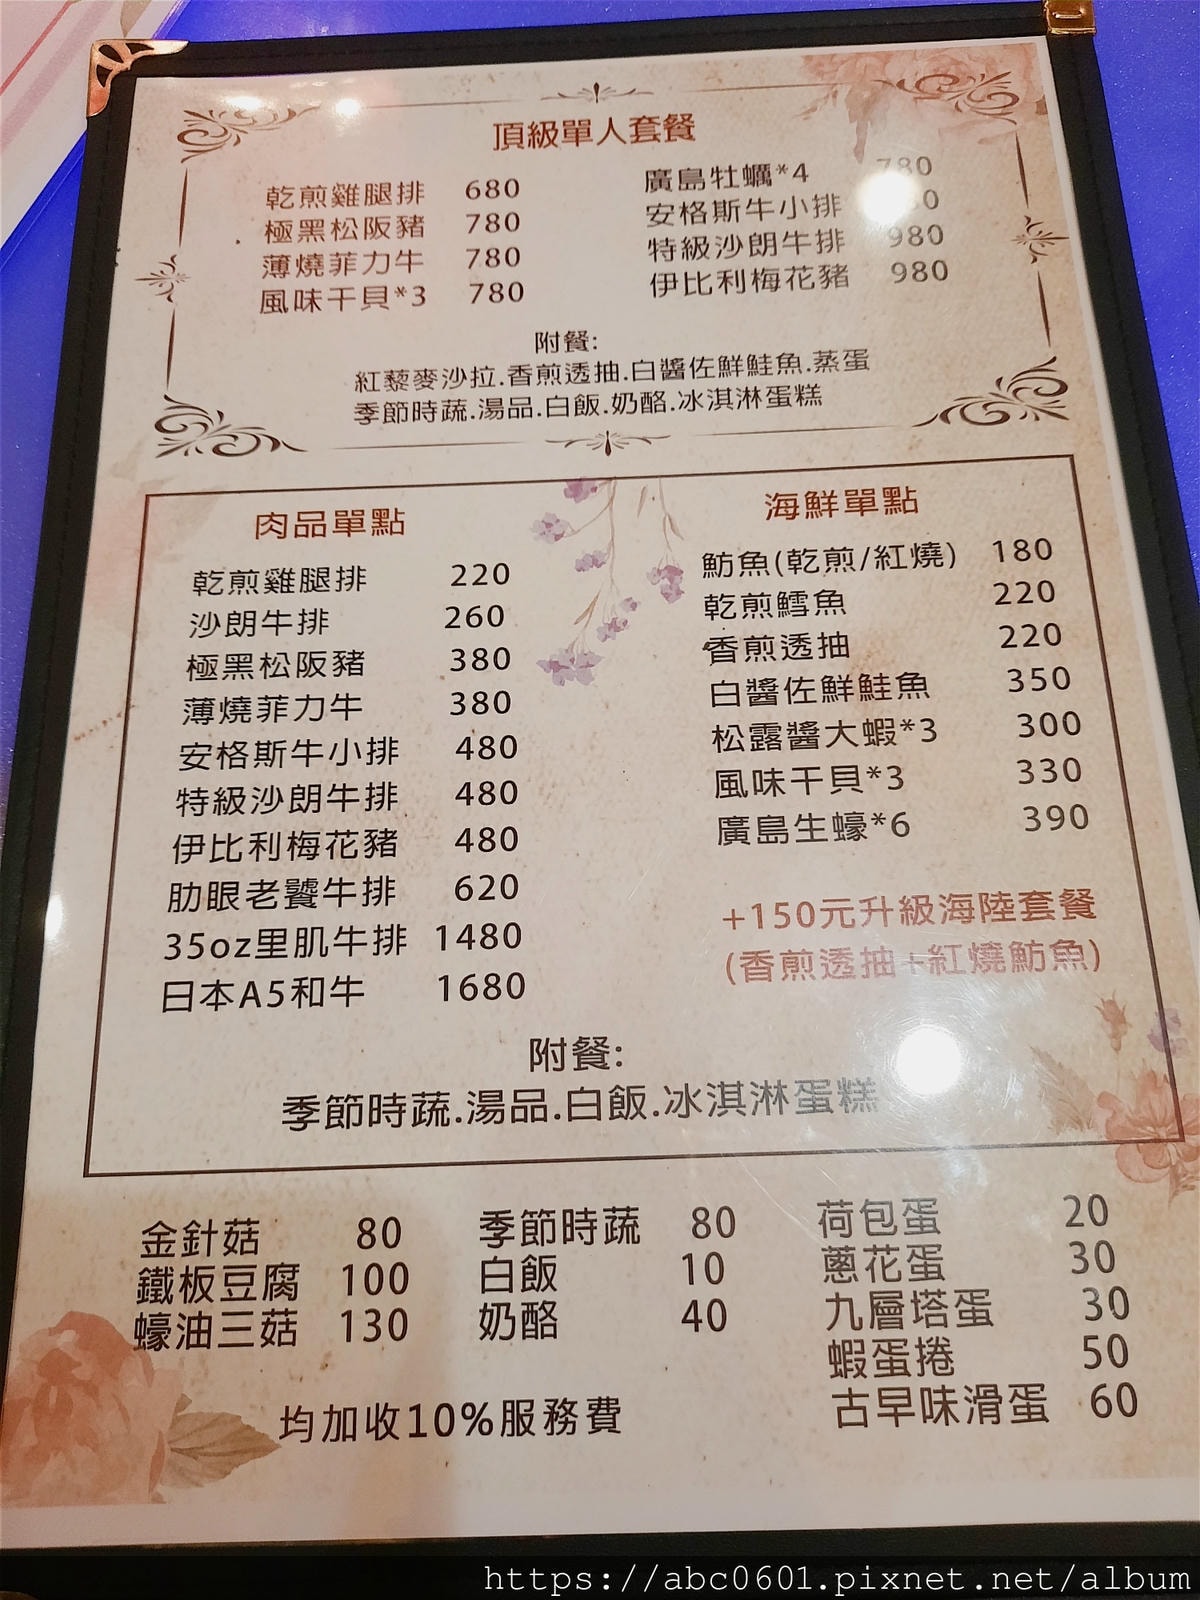 頂級單人套餐
乾煎雞腿排 680
極黑松阪豬 780
薄燒菲力牛 780
風味干貝*3 780
廣島牡蠣*4 780
安格斯牛小排
特級沙朗牛排 980
伊比利梅花豬 980
附餐:
紅藜麥沙拉.香煎透抽.白醬佐鮮鮭魚.蒸蛋
季節時蔬.湯品.白飯.奶酪.冰淇淋蛋糕
肉品單點
乾煎雞腿排 220
沙朗牛排 260
極黑松阪豬 380
薄燒菲力牛 380
安格斯牛小排 480
特級沙朗牛排 480
伊比利梅花豬 480
肋眼老饕牛排 620
35oz里肌牛排 1480
日本A5和牛 1680
海鮮單點
魴魚(乾煎/紅燒) 180
乾煎鱈魚 220
香煎透抽 220
白醬佐鮮鮭魚 350
松露醬大蝦*3 300
風味干貝*3 330
廣島生蠔*6 390
+150元升級海陸套餐
(香煎透抽+紅燒魴魚)
附餐:
季節時蔬.湯品.白飯.冰淇淋蛋糕
金針菇 80
鐵板豆腐 100
蠔油三菇 130
季節時蔬 80
白飯 10
奶酪 40
荷包蛋 20
蔥花蛋 30
九層塔蛋 30
蝦蛋捲 50
古早味滑蛋 60
均加收10%服務費
https://abc0601.pixnet.net/album